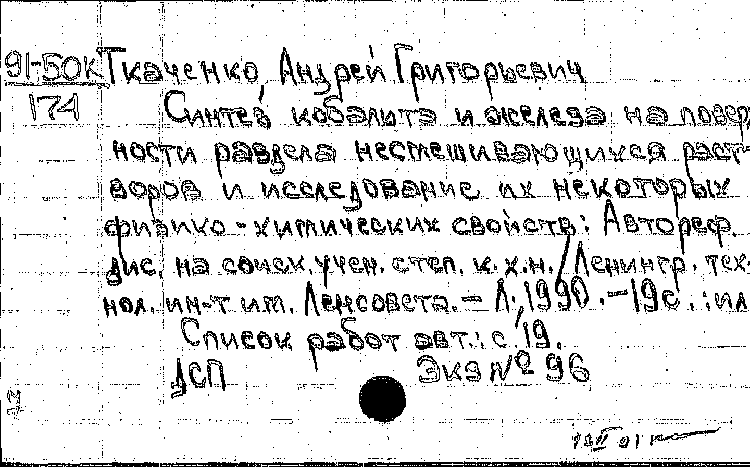 91-50К Ткаченко, Андрей Григорьевич
174 Синтез кобальта и железа на повер
ности раздела несмешивающихся раст-
воров и исследование их некоторых
физико-химических свойств: Автореф.
дис. на соиск. учен. степ. к.х.н./Ленингр. тех.
нол. ин-т им. Ленсовета. - Л., 1990. - 19с.: ил
Список работ авт.: с. 19.
ДСП Экз № 96